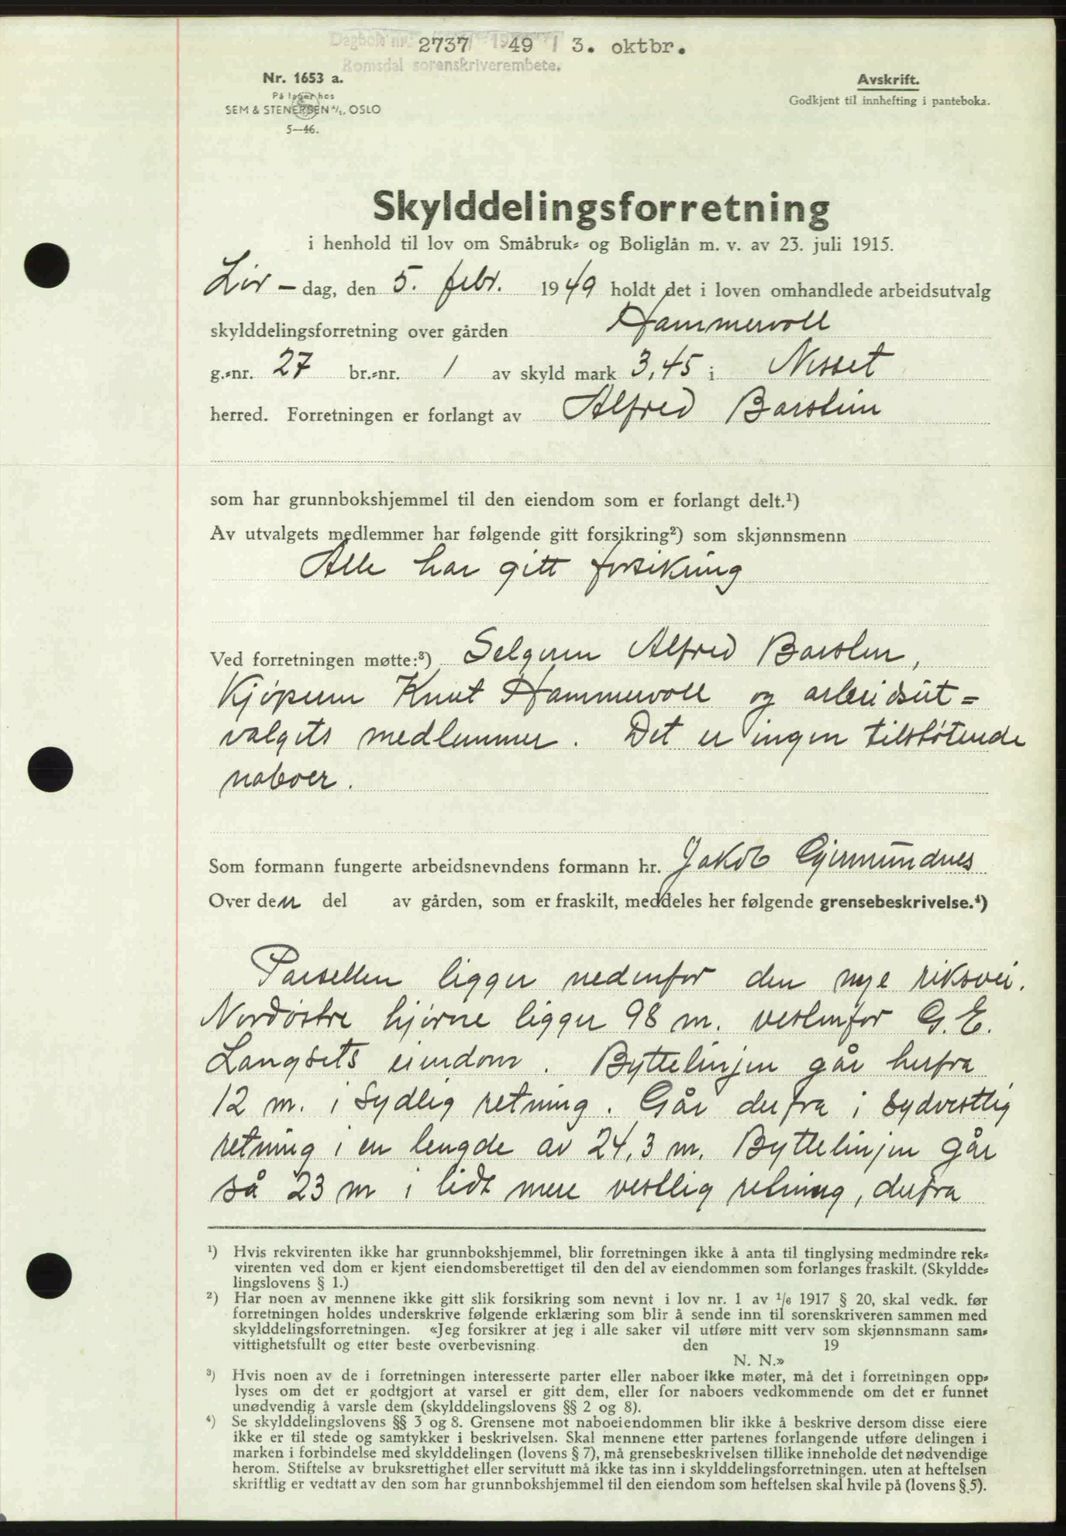 Dagbok nr. 2737 1949 / 3. oktbr.
Romsdal sorenskriverembete.
Nr. 1653 a.
På lager hos
SEM & STENERSEN A/S, OSLO
5—46.
Avskrift.
Godkjent til innhefting i panteboka.
Skylddelingsforretning
i henhold til lov om Småbruk- og Boliglån m. v. av 23. juli 1915.
Lør-dag, den 5. febr. 1949 holdt det i loven omhandlede arbeidsutvalg
skylddelingsforretning over gården Hammervoll
g.-nr. 27 br.-nr. 1 av skyld mark 3,45 i Nesset
herred. Forretningen er forlangt av Alfred Barslein
som har grunnbokshjemmel til den eiendom som er forlangt delt.¹)
Av utvalgets medlemmer har følgende gitt forsikring²) som skjønnsmenn
Alle har gitt forsikring
Ved forretningen møtte:³) Selgeren Alfred Barslen,
Kjøperen Knut Hammervoll og arbeidsut=
valgets medlemmer. Det er ingen tilstøtende
naboer.
Som formann fungerte arbeidsnevndens formann hr. Jakob Gjermundnes
Over den del av gården, som er fraskilt, meddeles her følgende grensebeskrivelse.⁴)
Parsellen ligger nedenfor den nye riksvei.
Nordøstre hjørne ligger 98 m. vestenfor G. E.
Langsets eiendom. Byttelinjen går herfra
12 m. i sydlig retning. Går derfra i sydvestlig
retning i en lengde av 24,3 m. Byttelinjen går
så 23 m i lidt mere vestlig retning, derfra
¹) Hvis rekvirenten ikke har grunnbokshjemmel, blir forretningen ikke å anta til tinglysing medmindre rek-
virenten ved dom er kjent eiendomsberettiget til den del av eiendommen som forlanges fraskilt. (Skyldde-
lingslovens § 1.)
²) Har noen av mennene ikke gitt slik forsikring som nevnt i lov nr. 1 av 1/6 1917 § 20, skal vedk. før
forretningen holdes underskrive følgende erklæring som blir å sende inn til sorenskriveren sammen med
skylddelingsforretningen. «Jeg forsikrer at jeg i alle saker vil utføre mitt verv som skjønnsmann sam-
vittighetsfullt og etter beste overbevisning den 19
N. N.»
³) Hvis noen av de i forretningen interesserte parter eller naboer ikke møter, må det i forretningen opp-
lyses om det er godtgjort at varsel er gitt dem, eller for naboers vedkommende om det er funnet
unødvendig å varsle dem (skylddelingslovens §§ 2 og 8).
⁴) Se skylddelingslovens §§ 3 og 8. Grensene mot naboeiendommen blir ikke å beskrive dersom disse eiere
ikke er til stede og samtykker i beskrivelsen. Skal mennene etter partenes forlangende utføre delingen i
marken i forbindelse med skylddelingen (lovens § 7), må grensebeskrivelsen tillike inneholde det nødvendige
herom. Stiftelse av bruksrettighet eller servitutt må ikke tas inn i skylddelingsforretningen, uten at heftelsen
skriftlig er vedtatt av den som har grunnbokshjemmel til den eiendom som heftelsen skal hvile på (lovens § 5).